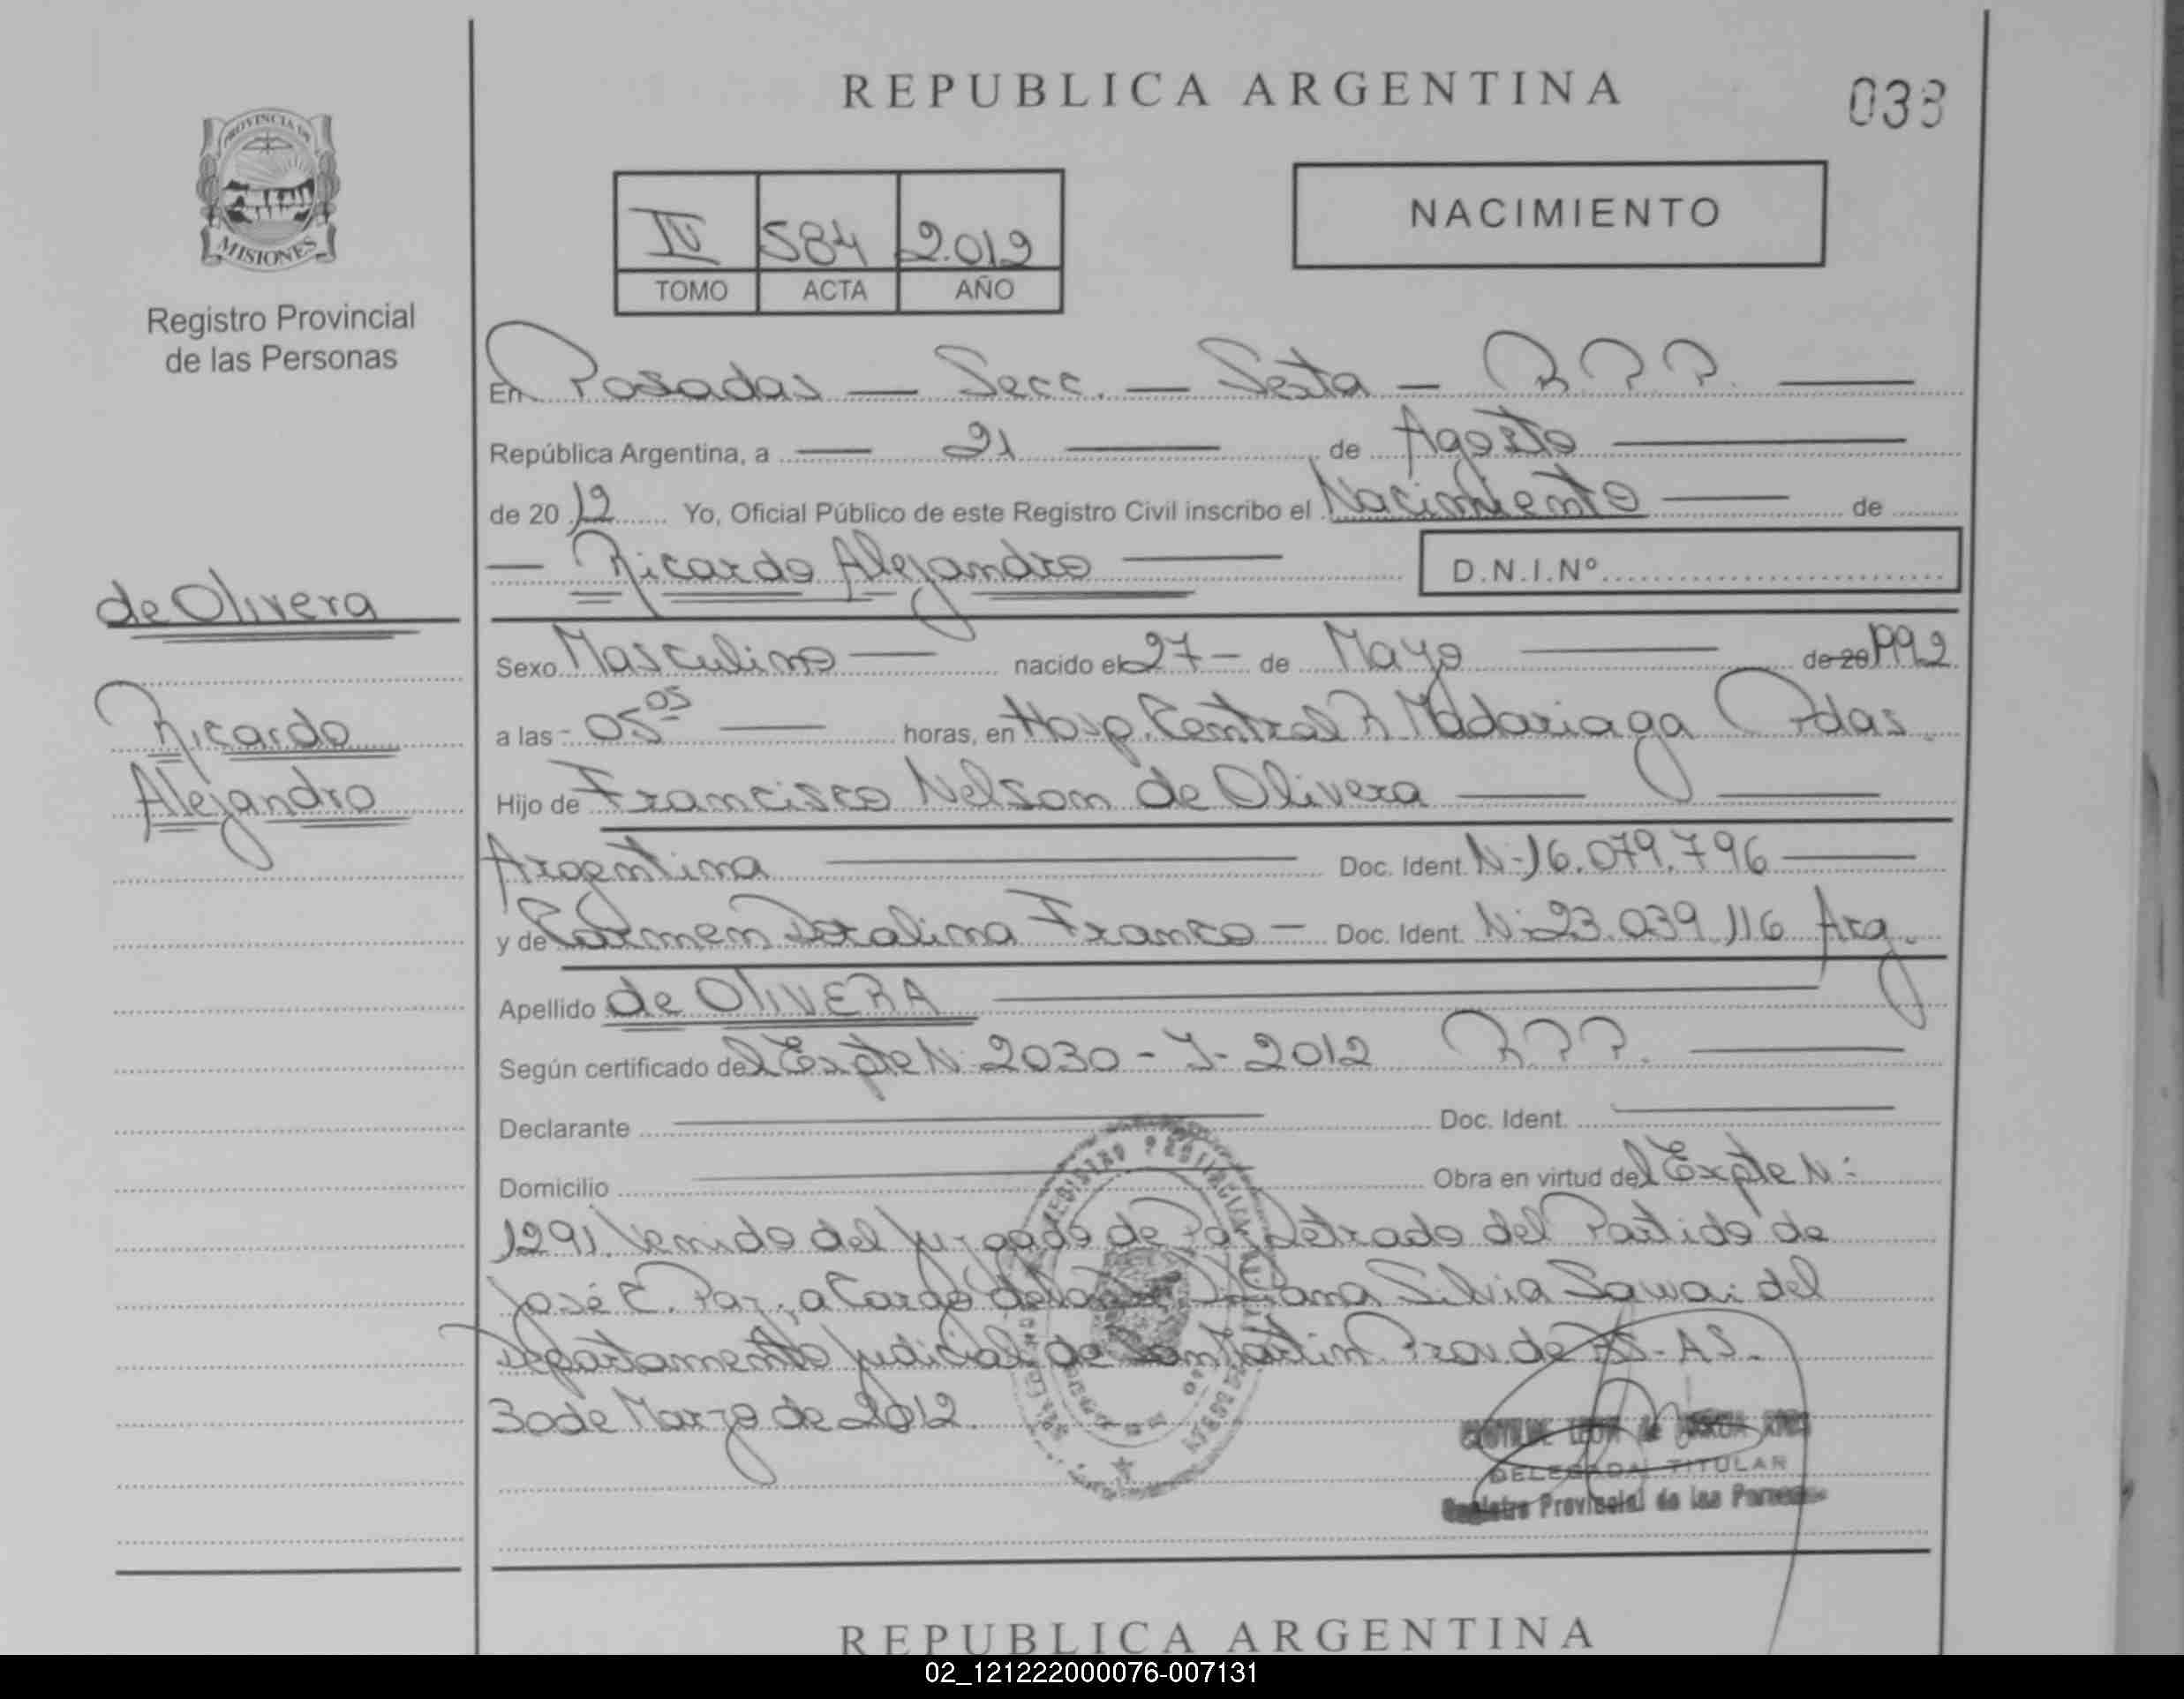 REPUBLICA ARGENTINA
033
PROVINCIA DE
MISIONES
Registro Provincial
de las Personas
IV 584 2.012
TOMO ACTA AÑO
NACIMIENTO
En Posadas — Secc. — Sexta — R.P.P. —
República Argentina, a — 21 — de Agosto —
de 20 12 Yo, Oficial Público de este Registro Civil inscribo el Nacimiento — de
— Ricardo Alejandro —
D.N.I.Nº
de Olivera
Ricardo
Alejandro
Sexo Masculino — nacido el 27 — de Mayo — de 20 1992
a las - 05 05 — horas, en Hosp. Central R. Madariaga Pdas.
Hijo de Francisco Nelson de Olivera —
Argentina — Doc. Ident. N-16.079.796 —
y de Carmen Franco — Doc. Ident. N: 23.039.116 Arg.
Apellido de OliVERA —
Según certificado del Expte N: 2030 - J - 2012 R.P.P. —
Declarante — Doc. Ident. —
Domicilio — Obra en virtud del Expte N:
1291. Venido del Juzgado de Paz Letrado del Partido de
José C. Paz, a Cargo de Silvia del
Departamento Judicial de San Martin Prov. de BS-AS.
30 de Marzo de 2012.
REGISTRO PROVINCIAL
DELEGADA TITULAR
Registro Provincial de las Personas
REPUBLICA ARGENTINA
02_121222000076-007131